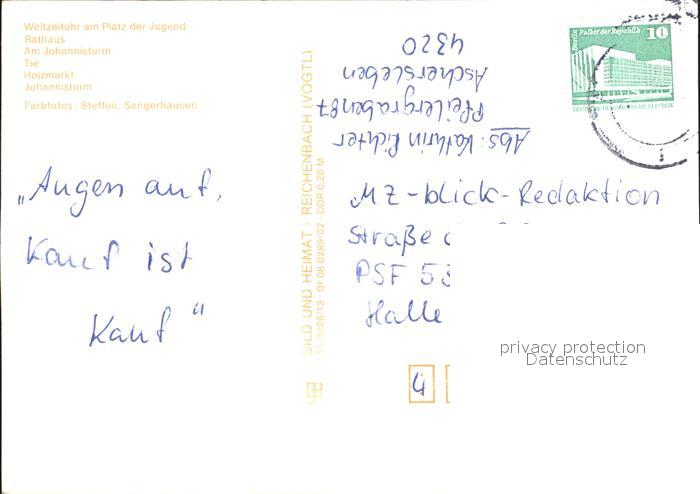 Weltzeituhr am Platz der Jugend
Rathaus
Am Johannisturm
Tie
Holzmarkt
Johannisturm
Farbfotos: Steffen, Sangerhausen
„Augen auf,
Kauf ist
Kauf“
BILD UND HEIMAT · REICHENBACH (VOGTL)
01 08 0289/02 DDR 0,20 M
Abs: Kathrin Richter
Pfeilergraben 87
Aschersleben
4320
Berlin Palast der Republik 10
MZ-blick-Redaktion
Straße
PSF 53
Halle
4
privacy protection
Datenschutz